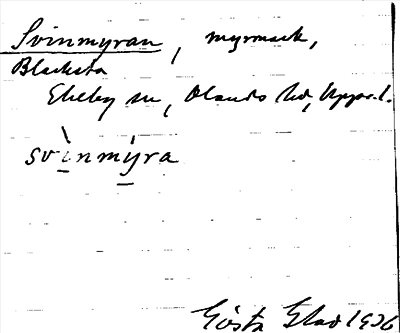 Svinmyran, myrmark,
Blacksta
Ekeby sn, Olands hd, Uppsa. l.
svìnmýra
Gösta Glad 1926